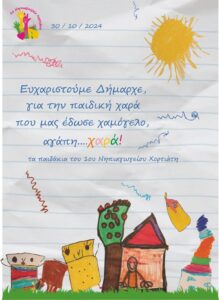 30 / 10 / 2024
Ευχαριστούμε Δήμαρχε,
για την παιδική χαρά
που μας έδωσε χαμόγελο,
αγάπη....χαρά!
τα παιδάκια του 1ου Νηπιαγωγείου Χορτιάτη